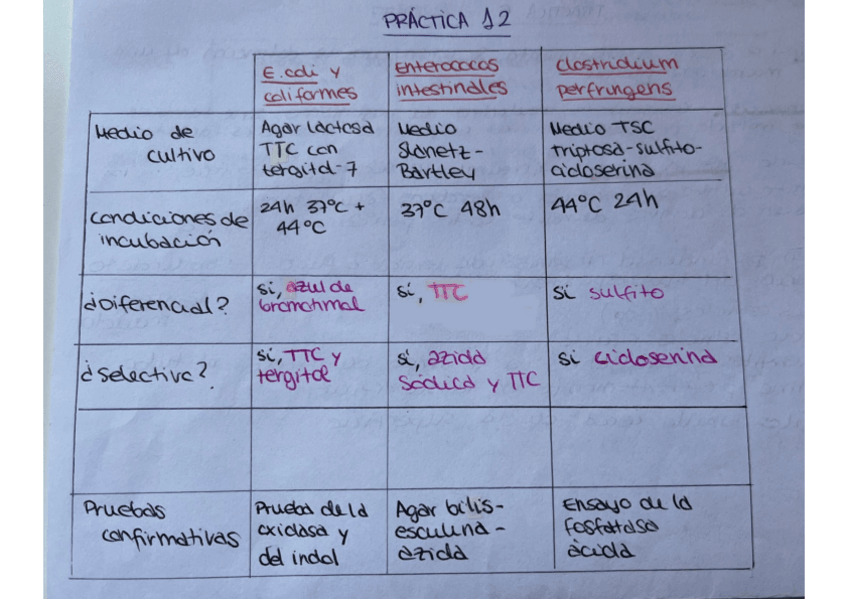 PRÁCTICA 12
E. coli y
coliformes
Enterococos
intestinales
Clostridium
perfrungens
Medio de
cultivo
Agar lactosa
TTC con
tergitol-7
Medio
Slanetz-
Bartley
Medio TSC
triptosa-sulfito-
cicloserina
Condiciones de
incubación
24h 37ºC +
44ºC
37ºC 48h
44ºC 24h
¿Diferencial?
sí, azul de
bromotimol
sí, TTC
sí sulfito
¿Selectivo?
sí, TTC y
tergitol
sí, azida
sódica y TTC
sí cicloserina
Pruebas
confirmativas
Prueba de la
oxidasa y
del indol
Agar bilis-
esculina-
azida
Ensayo de la
fosfatasa
ácida